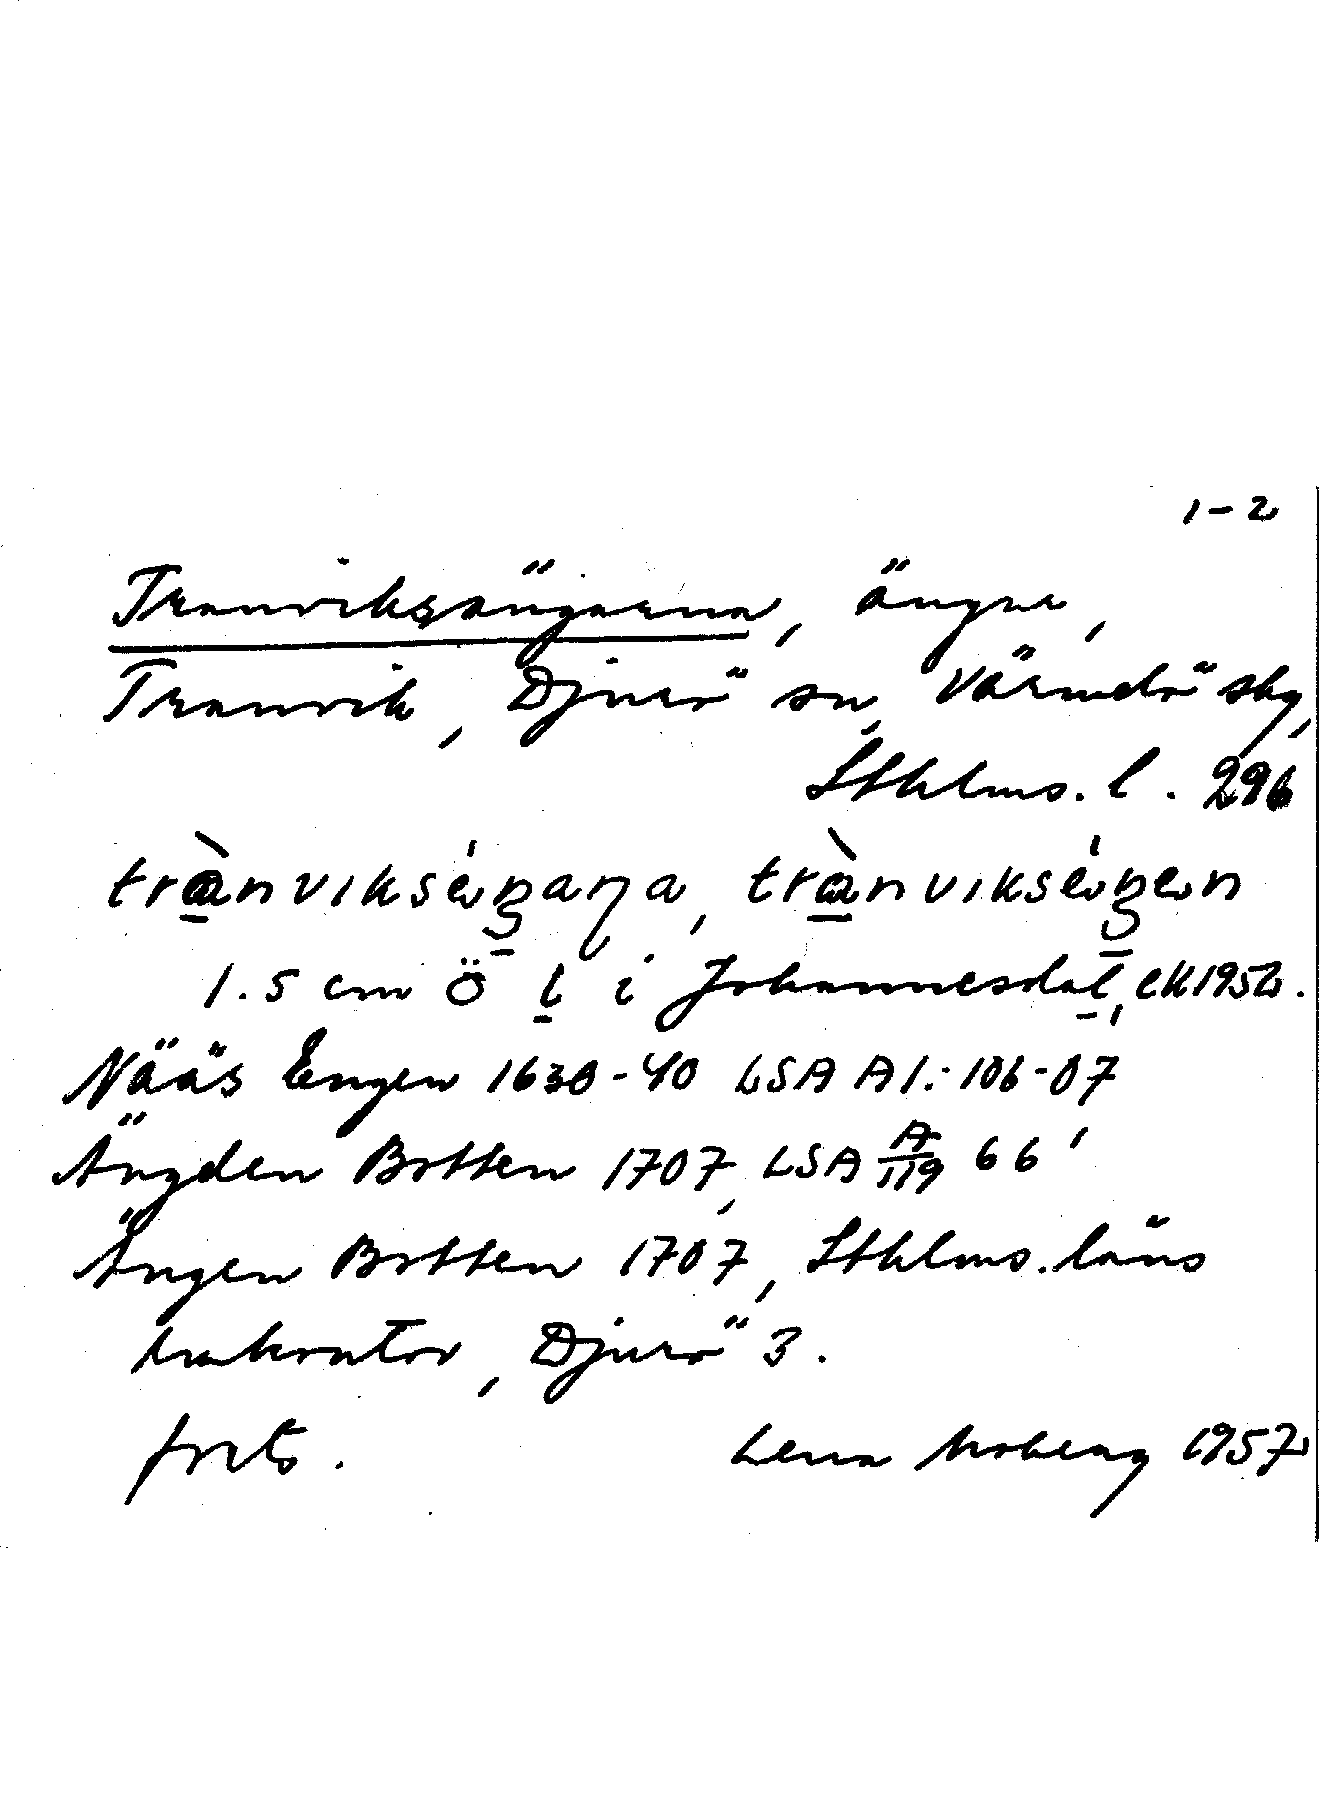 1-2
Tranviksängarna, ängar,
Tranvik, Djurö sn, Värmdö skg,
Sthlms. l. 296
trànvikséŋaṇa, trànvikséŋen
1.5 cm Ö l i Johannesdal, ek 1952.
Nääs Engen 1630-40 LSA A1:106-07
Ängden Botten 1707, LSA A/119 66'
Ängen Botten 1707, Sthlms. läns
lrakontor, Djurö 3.
forts. Lena Moberg 1957